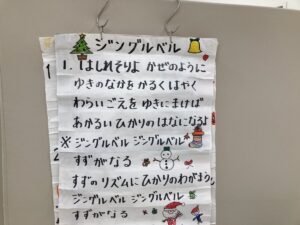 ジングルベル
1. はしれそりよ かぜのように
ゆきのなかを かるく はやく
わらいごえを ゆきにまけば
あかるい ひかりの はなになるよ
※ ジングルベル ジングルベル
すずがなる
すずの リズムに ひかりのわがまう
ジングルベル ジングルベル
すずがなる